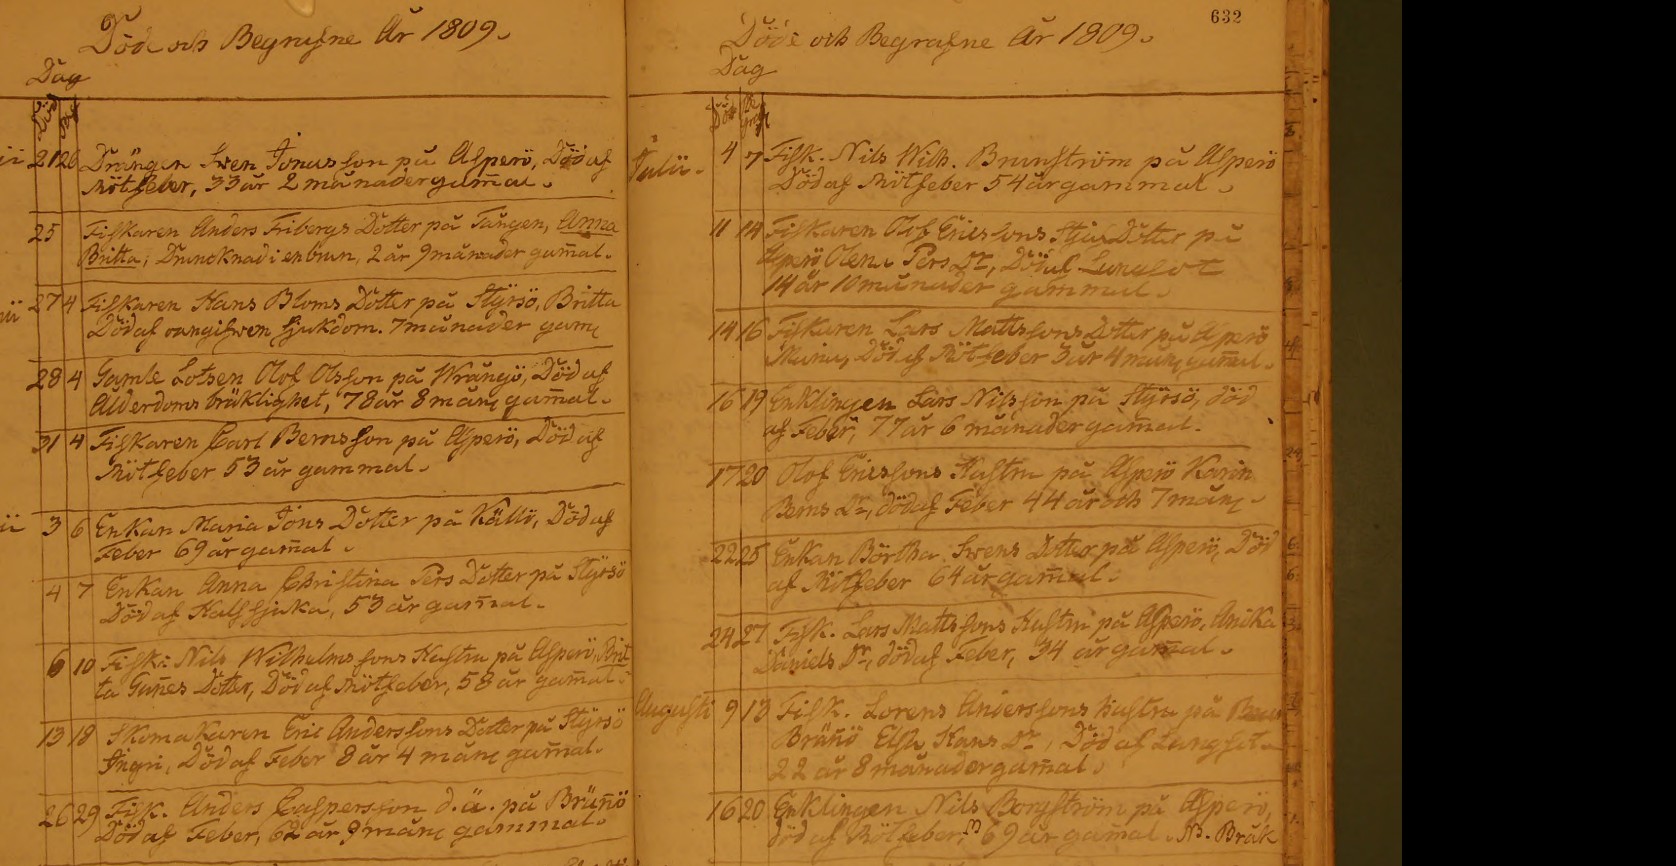 Död och Begrafne År 1809.
Dag
Död Begr
21 26 Drängen Swen Jonasson på Asperö, Död af
Rötfeber, 33 år 2 månader gam̄al.
25 Fiskaren Anders Fribergs Dotter på Tången, Anna
Britta, Drunknad i en brun, 2 år 9 månader gam̄al.
27 4 Fiskaren Hans Bloms Dotter på Styrsö, Britta
Död af oangifwen sjukdom. 7 månader gam
28 4 Gamle Lotsen Olof Olsson på Wrångö, Död af
Alderdoms bräklighet, 78 år 8 mån gam̄al.
31 4 Fiskaren Carl Bernsson på Asperö, Död af
Rötfeber 53 år gammal.
3 6 Enkan Maria Jöns Dotter på Källö, Död af
Feber 69 år gam̄al.
4 7 Enkan Anna Christina Pers Dotter på Styrsö
Död af Halssjuka, 53 år gam̄al.
6 10 Fisk: Nils Wilhelmssons Hustru på Asperö, Brit
ta Gun̄es Dotter, Död af Rötfeber, 58 år gam̄al.
13 18 Skomakaren Eric Anderssons Dotter på Styrsö
Ingri, Död af Feber 8 år 4 mån gam̄al.
26 29 Fisk. Anders Caspersson d.ä. på Brän̄ö
Död af Feber, 62 år 9 mån gammal.
632
Döde och Begrafne År 1809.
Dag
Död Begraf
Julii. 4 7 Fisk. Nils Wilh. Brunström på Asperö
Död af Rötfeber 54 år gammal.
11 14 Fiskaren Olof Ericssons Stjuf Dotter på
Asperö Olena Pers Dr, Död af Lungsot
14 år 10 månader gammal.
14 16 Fiskaren Lars Mattssons Dotter på Asperö
Maria, Död af Rötfeber 3 år 4 mån gam̄al.
16 19 Enklingen Lars Nilsson på Styrsö, död
af Feber, 77 år 6 månader gam̄al.
17 20 Olof Ericssons Hustru på Asperö Karin
Berns Dr, död af Feber 44 år och 7 mån.
22 25 Enkan Börtha Swens Dotter på Asperö, Död
af Rötfeber 64 år gam̄al.
24 27 Fisk. Lars Mattssons Hustru på Asperö, Anika
Daniels Dr, död af Feber, 34 år gam̄al.
Augusti 9 13 Fisk. Lorens Anderssons hustru på
Brän̄ö Elsa Hans Dr, Död af Lungsot
22 år 8 månader gam̄al.
16 20 Enklingen Nils Borgström på Asperö,
död af Rötfeber, 69 år gam̄al. NB. Bräk